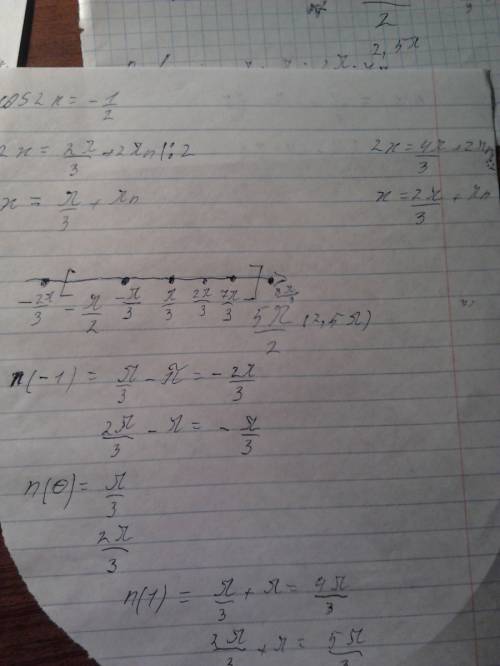 2
2,5π
cos2x = -1/2
2x = 2π/3 + 2πn |:2    2x = 4π/3 + 2πn
x = π/3 + πn    x = 2π/3 + πn
-2π/3 [ -π/2 -π/3 π/3 2π/3 7π/3 ] 5π/2 (2,5π)
n(-1) = π/3 - π = -2π/3
2π/3 - π = -π/3
n(0) = π/3
2π/3
n(1) = π/3 + π = 4π/3
2π/3 + π = 5π/3